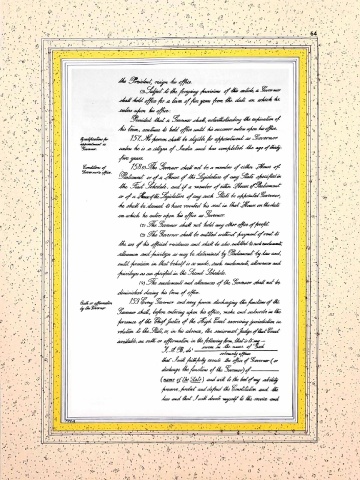 64
the President, resign his office.
(3) Subject to the foregoing provisions of this article, a Governor
shall hold office for a term of five years from the date on which he
enters upon his office:
Provided that a Governor shall, notwithstanding the expiration of
his term, continue to hold office until his successor enters upon his office.
Qualifications for
appointment as
Governor.
157. No person shall be eligible for appointment as Governor
unless he is a citizen of India and has completed the age of thirty
five years.
Conditions of
Governor's office.
158.(1) The Governor shall not be a member of either House of
Parliament or of a House of the Legislature of any State specified in
the First Schedule, and if a member of either House of Parliament
or of a House of the Legislature of any such State be appointed Governor,
he shall be deemed to have vacated his seat in that House on the date
on which he enters upon his office as Governor.
(2) The Governor shall not hold any other office of profit.
(3) The Governor shall be entitled without payment of rent to
the use of his official residences and shall be also entitled to such emoluments,
allowances and privileges as may be determined by Parliament by law and,
until provision in that behalf is so made, such emoluments, allowances and
privileges as are specified in the Second Schedule.
(4) The emoluments and allowances of the Governor shall not be
diminished during his term of office.
Oath or affirmation
by the Governor.
159. Every Governor and every person discharging the functions of the
Governor shall, before entering upon his office, make and subscribe in the
presence of the Chief Justice of the High Court exercising jurisdiction in
relation to the State, or, in his absence, the seniormost Judge of that Court
available, an oath or affirmation in the following form, that is to say—
I, A. B., do swear in the name of God
solemnly affirm
that I will faithfully execute the office of Governor (or
discharge the functions of the Governor) of
(name of the State) and will to the best of my ability
preserve, protect and defend the Constitution and the
law and that I will devote myself to the service and